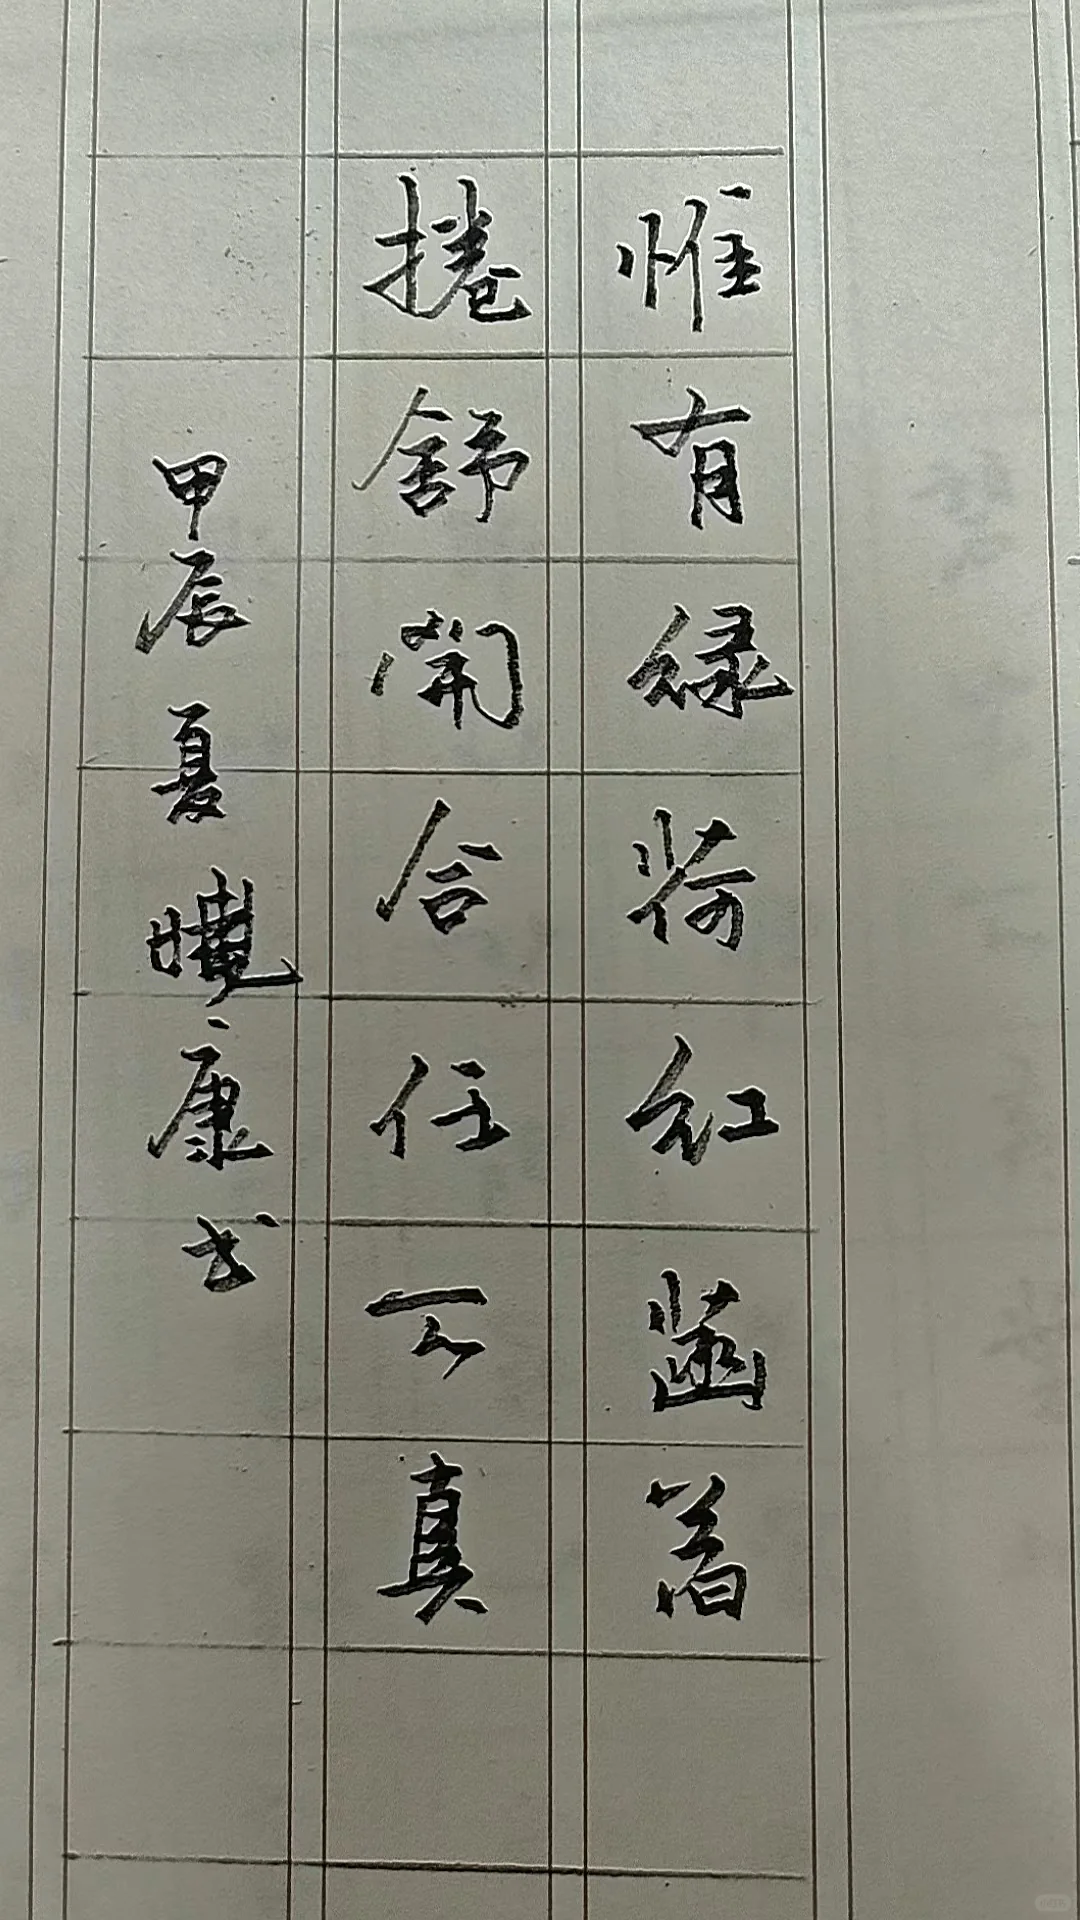 惟有绿荷红菡萏
捲舒開合任天真
甲辰夏曉康书